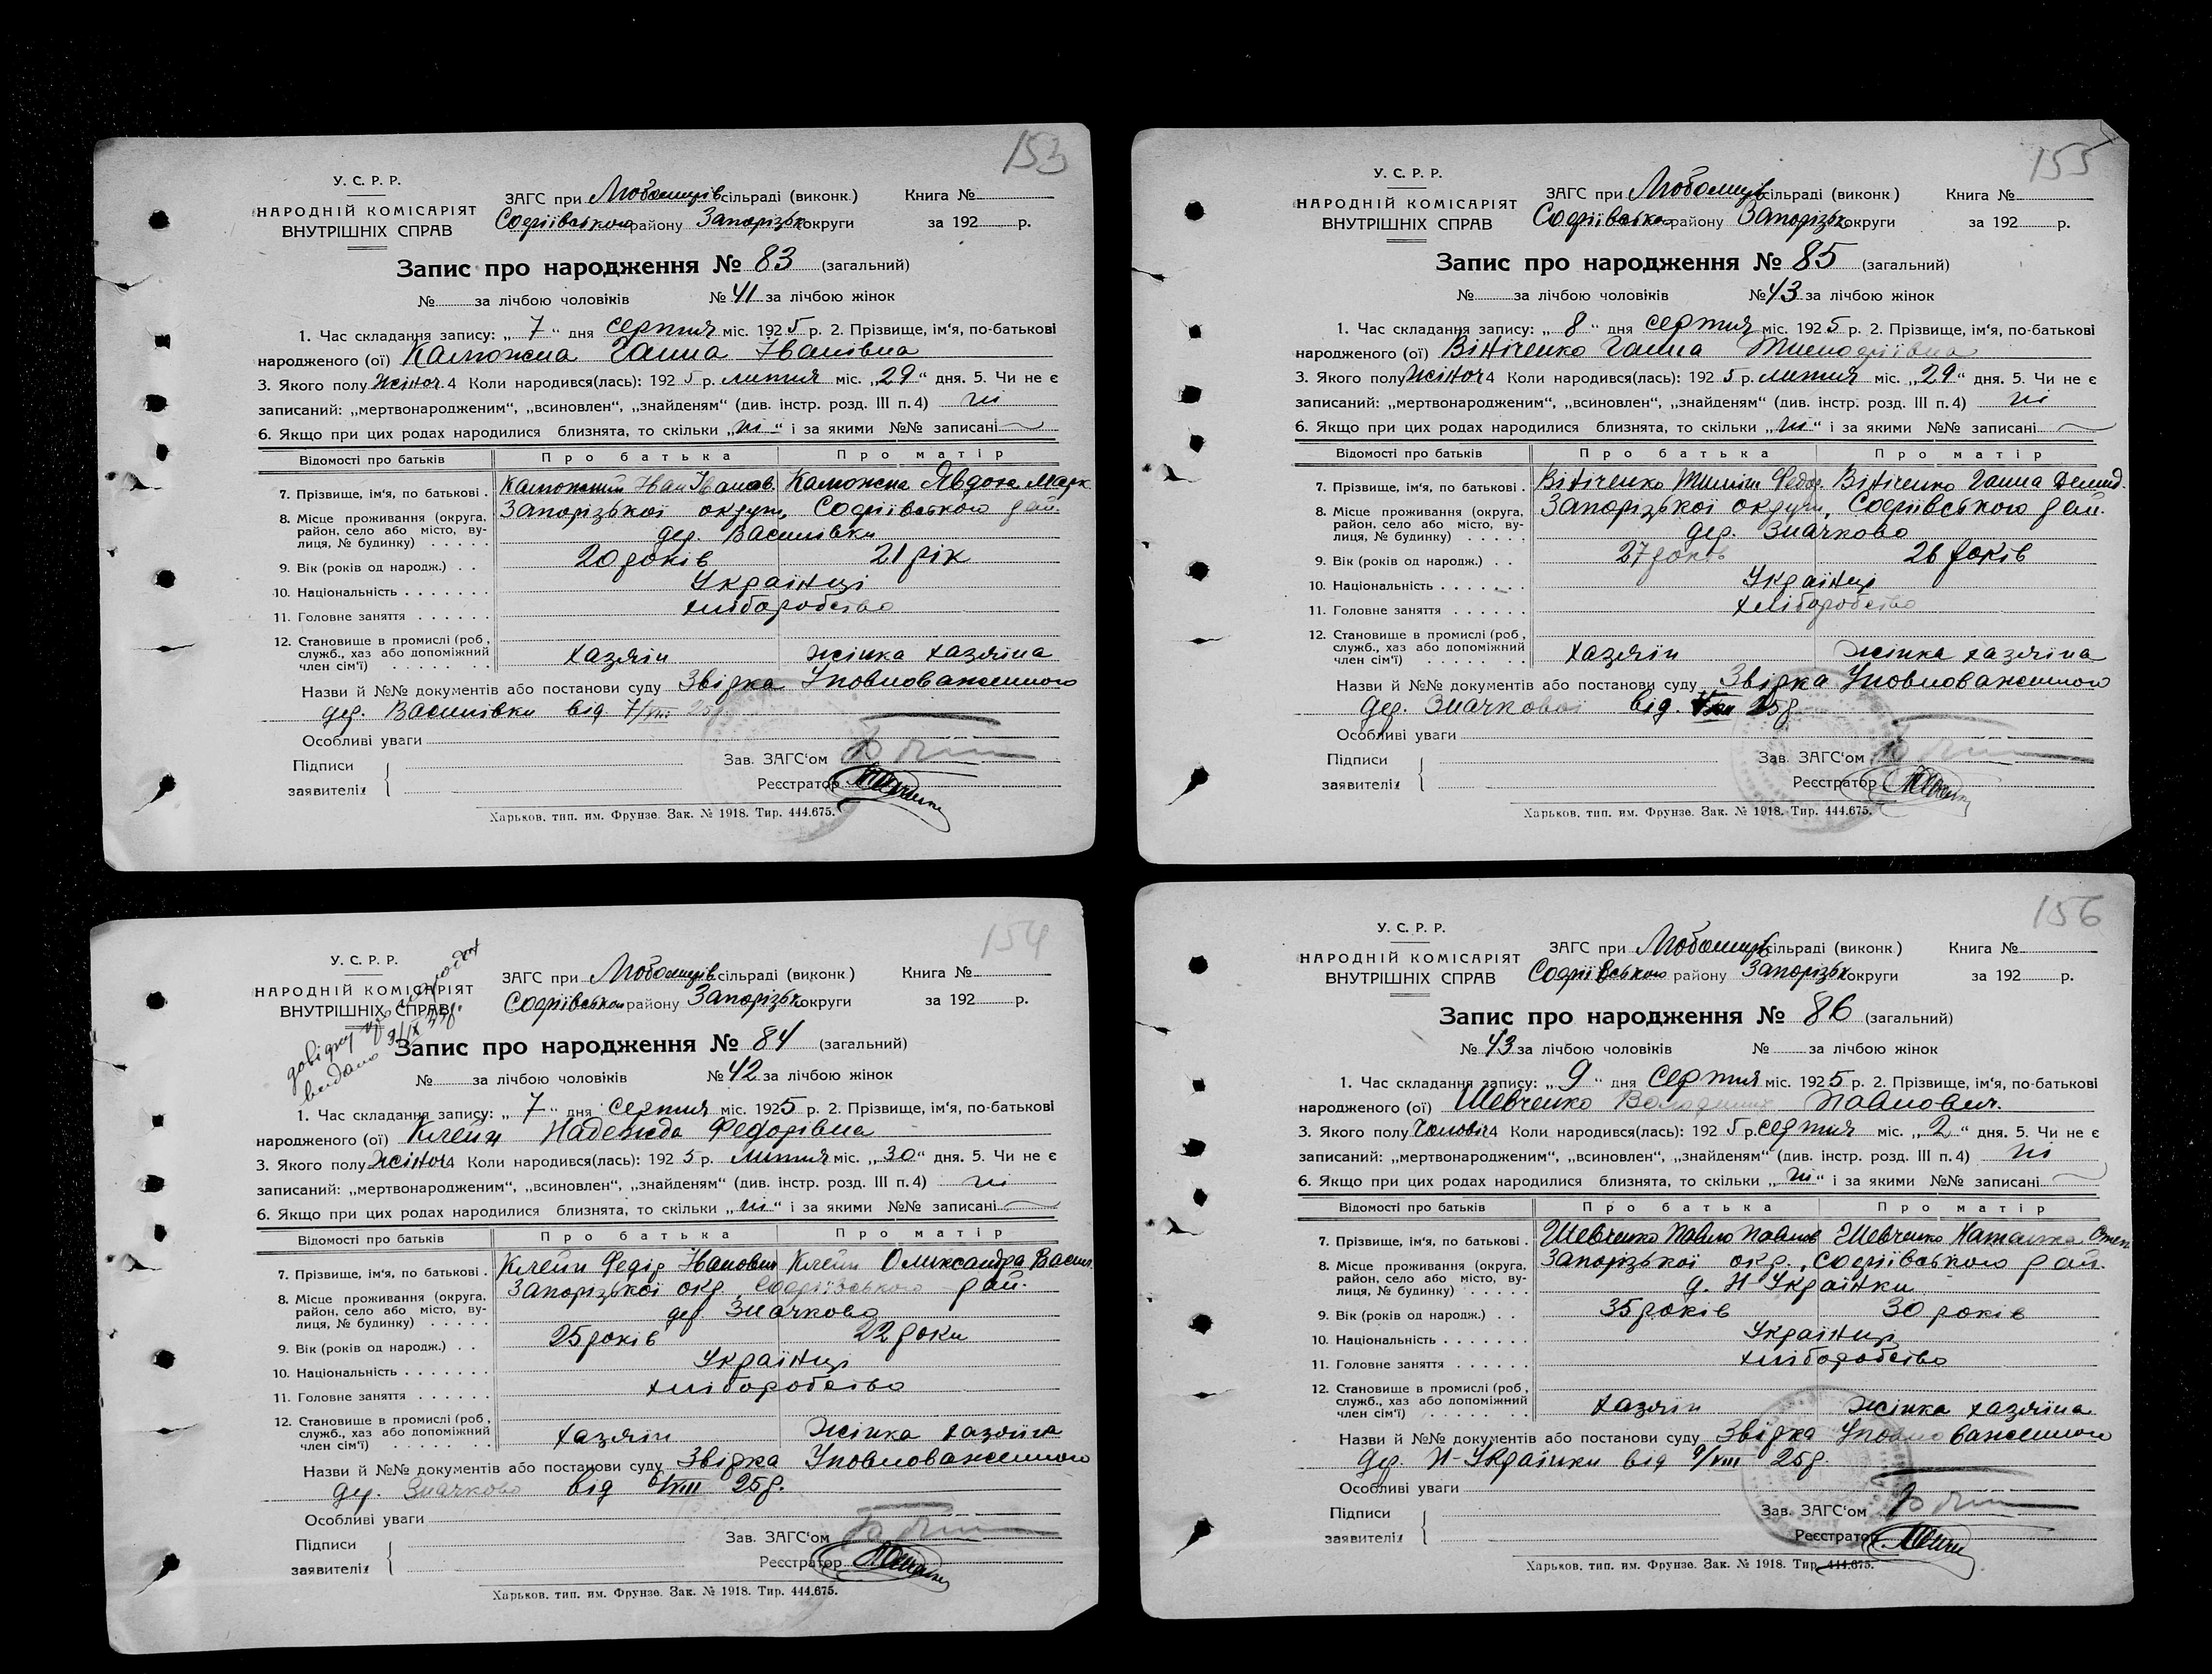 153
У. С. Р. Р.
НАРОДНІЙ КОМІСАРІЯТ
ВНУТРІШНІХ СПРАВ
ЗАГС при Любомирів сільраді (виконк) Книга №
Софіївського району Запорізьк округи за 192 р.
Запис про народження № 83 (загальний)
№ за лічбою чоловіків № 41 за лічбою жінок
1. Час складання запису: „ 7 “ дня серпня міс. 1925 р. 2. Прізвище, ім‘я, по-батькові
народженого (ої) Каможна Ганна Іванівна
3. Якого полу жіноч. 4 Коли народився(лась): 1925 р. липня міс. „29“ дня. 5. Чи не є
записаний: „мертвонародженим“, „всиновлен“, „знайденям“ (див. інстр. розд. III п. 4) ні
6. Якщо при цих родах народилися близнята, то скільки „ні“ і за якими №№ записані
Відомості про батьків Про батька Про матір
7. Прізвище, ім‘я, по батькові . Іван Іванов. Каможна Явдоха Марк
8. Місце проживання (округа, Запорізької округи, Софіївського рай.
район, село або місто, ву-
лиця, № будинку) . . . . . дер. Василівки
9. Вік (років од народж.) . . 20 років 21 рік
10. Національність . . . . . . . Українці
11. Головне заняття . . . . . . хліборобство
12. Становище в промислі (роб,
служб., хаз або допоміжний
член сім‘ї) . . . . . . . хазяїн жінка хазяїна
Назви й №№ документів або постанови суду Звірка Уповноваженного
дер. Василівки від 7/VIII 25р
Особливі уваги
Підписи Зав. ЗАГС‘ом
заявителів Реєстратор
Харьков, тип. им. Фрунзе. Зак. № 1918. Тир. 444.675.
155
У. С. Р. Р.
НАРОДНІЙ КОМІСАРІЯТ
ВНУТРІШНІХ СПРАВ
ЗАГС при Любомирів сільраді (виконк) Книга №
Софіївського району Запорізьк округи за 192 р.
Запис про народження № 85 (загальний)
№ за лічбою чоловіків № 43 за лічбою жінок
1. Час складання запису: „ 8 “ дня серпня міс. 1925 р. 2. Прізвище, ім‘я, по-батькові
народженого (ої) Вініченко Ганна
3. Якого полу жіноч 4 Коли народився(лась): 1925 р. липня міс. „29“ дня. 5. Чи не є
записаний: „мертвонародженим“, „всиновлен“, „знайденям“ (див. інстр. розд. III п. 4) ні
6. Якщо при цих родах народилися близнята, то скільки „ні“ і за якими №№ записані
Відомості про батьків Про батька Про матір
7. Прізвище, ім‘я, по батькові . Вініченко Федор. Вініченко Ганна Демид
8. Місце проживання (округа, Запорізької округи, Софіївського рай.
район, село або місто, ву-
лиця, № будинку) . . . . . дер. Значково
9. Вік (років од народж.) . . 27 років 26 років
10. Національність . . . . . . . Українці
11. Головне заняття . . . . . . хліборобство
12. Становище в промислі (роб,
служб., хаз або допоміжний
член сім‘ї) . . . . . . . хазяїн жінка хазяїна
Назви й №№ документів або постанови суду Звірка Уповноваженного
дер. Значкової від. 25р
Особливі уваги
Підписи Зав. ЗАГС‘ом
заявителів Реєстратор
Харьков, тип. им. Фрунзе. Зак. № 1918. Тир. 444.675.
154
довідку про народж
видано 9/IX
У. С. Р. Р.
НАРОДНІЙ КОМІСАРІЯТ
ВНУТРІШНІХ СПРАВ
ЗАГС при Любомирів. сільраді (виконк) Книга №
Софіївськой району Запорізьк округи за 192 р.
Запис про народження № 84 (загальний)
№ за лічбою чоловіків № 42 за лічбою жінок
1. Час складання запису: „ 7 “ дня серпня міс. 1925 р. 2. Прізвище, ім‘я, по-батькові
народженого (ої) Клейн Надежда Федорівна
3. Якого полу жіноч 4 Коли народився(лась): 1925 р. липня міс. „30“ дня. 5. Чи не є
записаний: „мертвонародженим“, „всиновлен“, „знайденям“ (див. інстр. розд. III п. 4) ні
6. Якщо при цих родах народилися близнята, то скільки „ні“ і за якими №№ записані
Відомості про батьків Про батька Про матір
7. Прізвище, ім‘я, по батькові . Клейн Федір Іванович Клейн Олександра Васил.
8. Місце проживання (округа, Запорізької окр Софіївського рай.
район, село або місто, ву-
лиця, № будинку) . . . . . дер. Значково
9. Вік (років од народж.) . . 25 років 22 роки
10. Національність . . . . . . . Українці
11. Головне заняття . . . . . . хліборобство
12. Становище в промислі (роб,
служб., хаз або допоміжний
член сім‘ї) . . . . . . . хазяїн жінка хазяїна
Назви й №№ документів або постанови суду Звірка Уповноваженного
дер. Значково від 6/VIII 25р.
Особливі уваги
Підписи Зав. ЗАГС‘ом
заявителів Реєстратор
Харьков, тип. им. Фрунзе. Зак. № 1918. Тир. 444.675.
156
У. С. Р. Р.
НАРОДНІЙ КОМІСАРІЯТ
ВНУТРІШНІХ СПРАВ
ЗАГС при Любомирів сільраді (виконк) Книга №
Софіївського району Запорізьк округи за 192 р.
Запис про народження № 86 (загальний)
№ 43 за лічбою чоловіків № за лічбою жінок
1. Час складання запису: „ 9 “ дня серпня міс. 1925 р. 2. Прізвище, ім‘я, по-батькові
народженого (ої) Шевченко Володимир Павлович.
3. Якого полу Чоловіч 4 Коли народився(лась): 1925 р. серпня міс. „2“ дня. 5. Чи не є
записаний: „мертвонародженим“, „всиновлен“, „знайденям“ (див. інстр. розд. III п. 4) ні
6. Якщо при цих родах народилися близнята, то скільки „ні“ і за якими №№ записані
Відомості про батьків Про батька Про матір
7. Прізвище, ім‘я, по батькові . Шевченко Павло Павлов Шевченко Наталка Степ
8. Місце проживання (округа, Запорізької окр., Софіївського рай.
район, село або місто, ву-
лиця, № будинку) . . . . . д. Н-Українки
9. Вік (років од народж.) . . 35 років 30 років
10. Національність . . . . . . . Українці
11. Головне заняття . . . . . . хліборобство
12. Становище в промислі (роб,
служб., хаз або допоміжний
член сім‘ї) . . . . . . . хазяїн жінка хазяїна
Назви й №№ документів або постанови суду Звірка Уповноваженного
дер. Н-Українки від 9/VIII 25р.
Особливі уваги
Підписи Зав. ЗАГС‘ом
заявителів Реєстратор
Харьков, тип. им. Фрунзе. Зак. № 1918. Тир. 444.675.